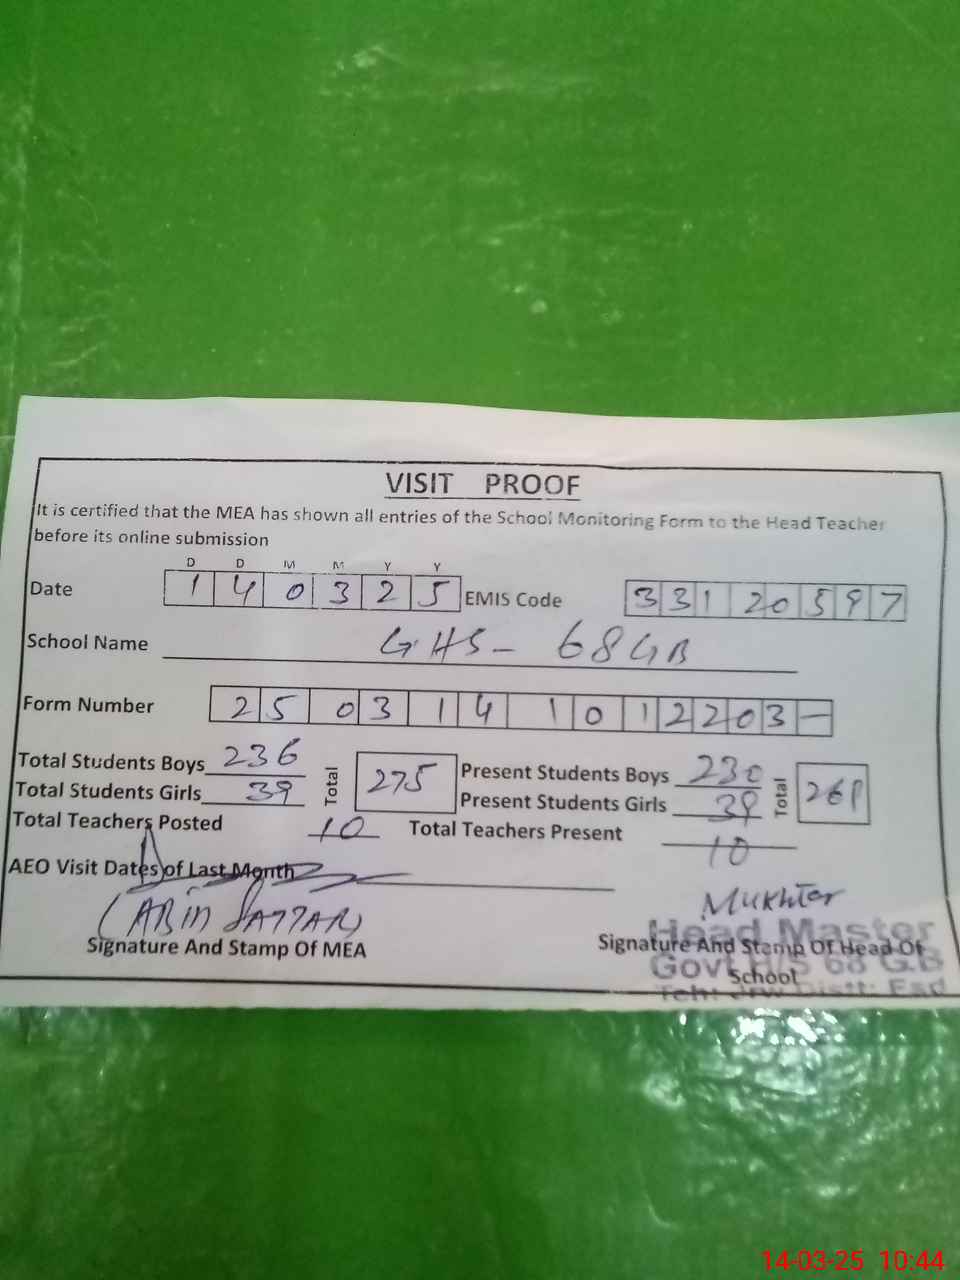 VISIT PROOF
It is certified that the MEA has shown all entries of the School Monitoring Form to the Head Teacher
before its online submission
D D M M Y Y
Date 1 4 0 3 2 5 EMIS Code 3 3 1 2 0 5 9 7
School Name GHS - 68 GB
Form Number 2 5 0 3 1 4 1 0 1 2 2 0 3 -
Total Students Boys 236 Total 275 Present Students Boys 230 Total
Total Students Girls 39 Present Students Girls 39
Total Teachers Posted 10 Total Teachers Present 10
AEO Visit Dates of Last Month
Mukhtar
Signature And Stamp Of MEA Signature And Stamp Of Head Of
School
Head Master
Govt H/S 68 G.B
Teh: Jrw Distt: Fsd
14-03-25 10:44